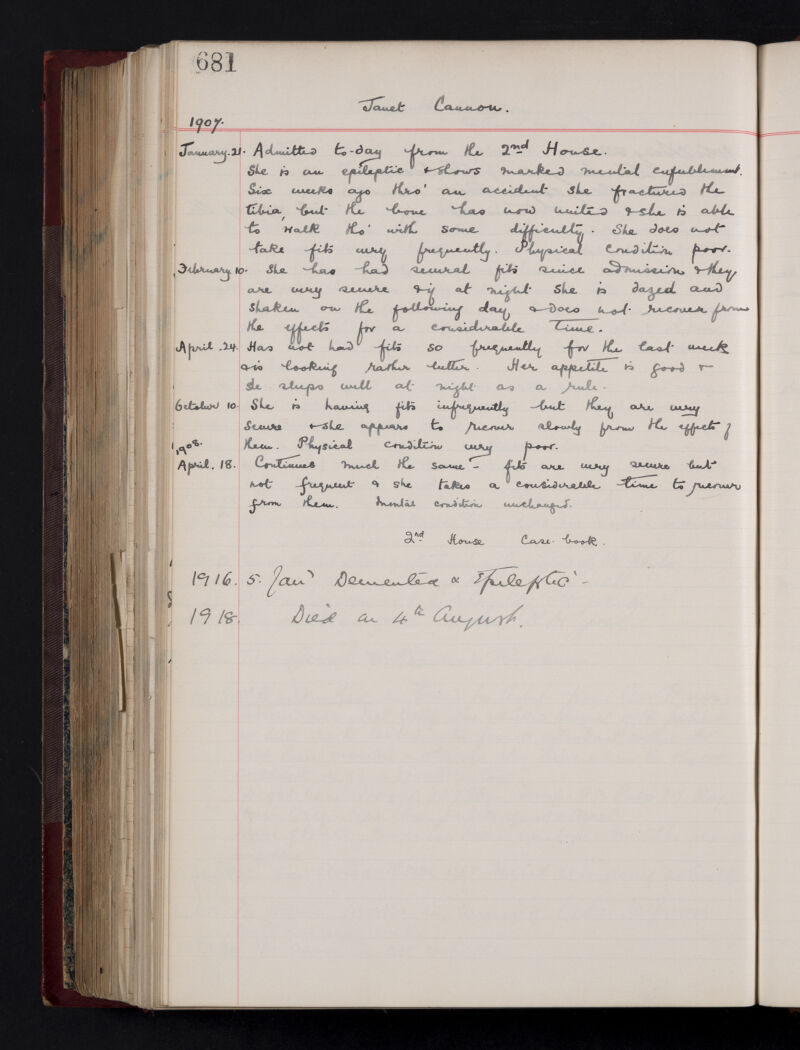 681
Janet Cannon.
1907.
January. 21. Admitted to-day from the 2nd House.
She is an epileptic & shows marked mental enfeeblement.
Six weeks ago thro' an accident she fractured the
tibia, but the bone has now united & she is able
to walk tho' with some difficulty. She does not
take fits very frequently. Physical condition poor.
February 10. She has had several fits since admission & they
are very severe & if at night she is dazed and
shaken on the following day & does not recover from
the effects for a considerable time.
April. 24. Has not had fits so frequently for the last week
& is looking rather better. Her appetite is good &
she sleeps well at night as a rule.
October 10. She is having fits infrequently but they are very
severe & she appears to recover slowly from the effects of
them. Physical condition very poor.
1908.
April. 18. Continues much the same - fits are very severe but
not frequent & she takes a considerable time to recover
from them. Mental condition unchanged.
2nd House Case-book.
1916. 5. Jany Demented & Epileptic -
1918. Died on 4th August.